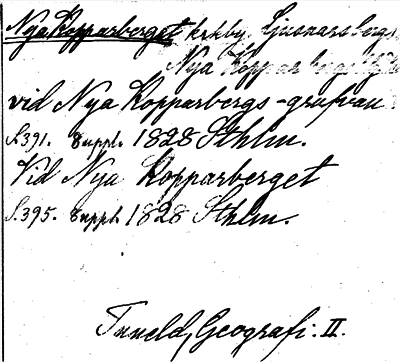 Nya Kopparberget krkby. Ljusnarsbergs
Nya Kopparbergs
vid Nya Kopparbergs-grufvan.
S.391. Suppl. 1828 Sthlm.
Vid Nya Kopparberget
S.395. Suppl. 1828 Sthlm.
Tuneld, Geografi. II.